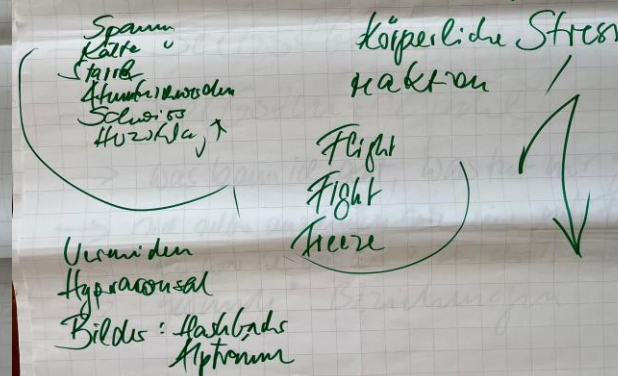 Spann
Kälte "
Starre
Schweiss
Herzschlag ↑
Körperliche Stress
reaktion
Flight
Fight
Freeze
Vermeiden
Hyperarousal
Bilder: Flashbacks
Alptraum